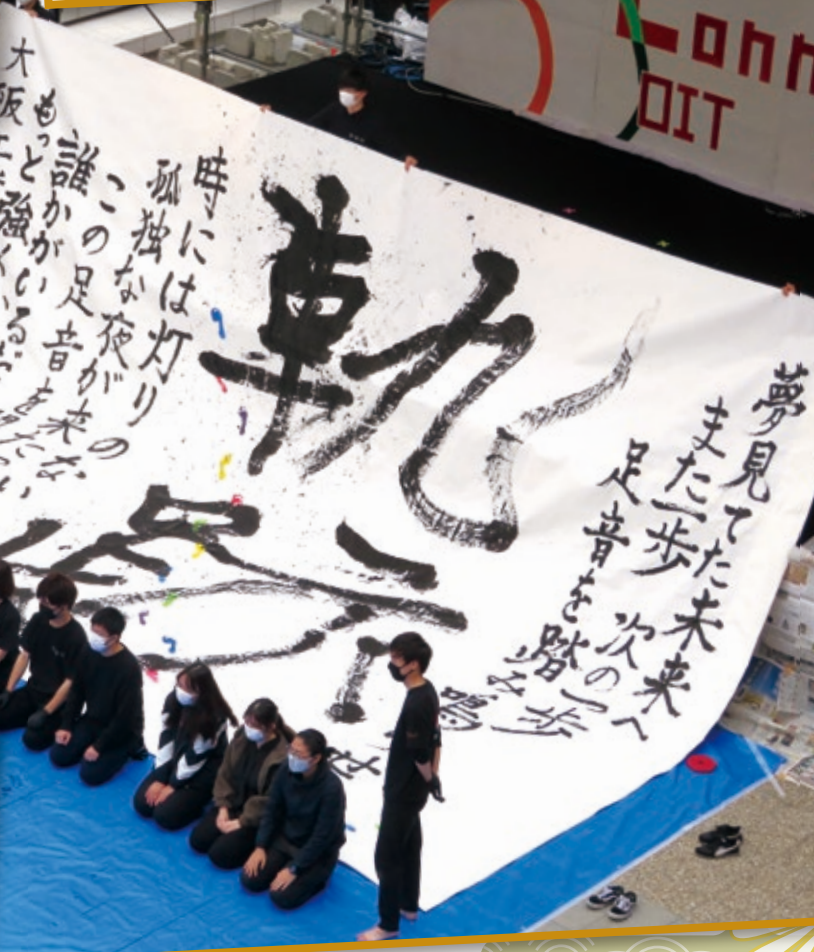 OIT
夢見てた未来へ
また一歩 次の一歩
足音を踏み鳴
せ
軌跡
時には灯りの
孤独な夜が来な
この足音を
誰かがいる
もっと強く
大阪工